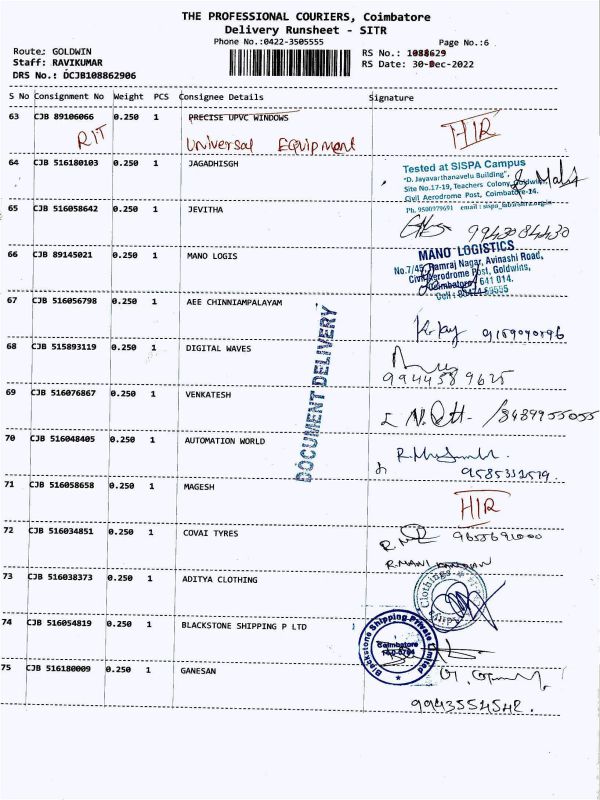 THE PROFESSIONAL COURIERS, Coimbatore
Delivery Runsheet - SITR
Phone No.:0422-3505555
Page No.:6
Route: GOLDWIN
Staff: RAVIKUMAR
DRS No.: DCJB108862906
RS No.: 1088629
RS Date: 30-Dec-2022
S No Consignment No Weight PCS Consignee Details Signature
63 CJB 89106066 0.250 1 PRECISE UPVC WINDOWS
RIT Universal Equipment HIR
64 CJB 516180103 0.250 1 JAGADHISGH
Tested at SISPA Campus
"D. Jayavarthanavelu Building",
Site No.17-19, Teachers Colony, Goldwins,
Civil Aerodrome Post, Coimbatore-14.
Ph. 9500979691 email :
65 CJB 516058642 0.250 1 JEVITHA
9943084430
66 CJB 89145021 0.250 1 MANO LOGIS
MANO LOGISTICS
No.7/45, Ramraj Nagar, Avinashi Road,
Civil Aerodrome Post, Goldwins,
Coimbatore - 641 014.
67 CJB 516056798 0.250 1 AEE CHINNIAMPALAYAM
DOCUMENT DELIVERY
68 CJB 515893119 0.250 1 DIGITAL WAVES
9944589625
69 CJB 516076867 0.250 1 VENKATESH
8489955055
70 CJB 516048405 0.250 1 AUTOMATION WORLD
9585311519.
71 CJB 516058658 0.250 1 MAGESH
HIR
72 CJB 516034851 0.250 1 COVAI TYRES
9655691000
73 CJB 516038373 0.250 1 ADITYA CLOTHING
74 CJB 516054819 0.250 1 BLACKSTONE SHIPPING P LTD
Blackstone Shipping Private Limited
Coimbatore
75 CJB 516180009 0.250 1 GANESAN
9943554542.